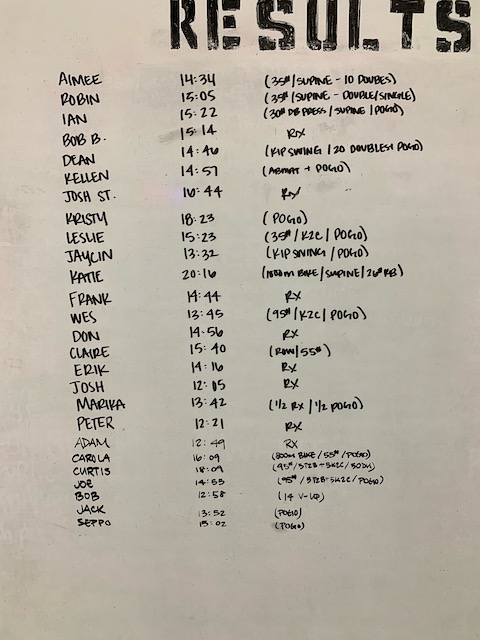 RESULTS
AIMEE 14:34 (35#/SUPINE - 10 DOUBES)
ROBIN 15:05 (35#/SUPINE - DOUBLE/SINGLE)
IAN 15:22 (30# DB PRESS/SUPINE/POGO)
BOB B. 15:14 RX
DEAN 14:46 (KIP SWING/20 DOUBLES+POGO)
KELLEN 14:57 (ABMAT + POGO)
JOSH ST. 16:44 RX
KRISTY 18:23 (POGO)
LESLIE 15:23 (35#/K2C/POGO)
JAYCIN 13:32 (KIP SWING/POGO)
KATIE 20:16 (1000M BIKE/SUPINE/26# KB)
FRANK 14:44 RX
WES 13:45 (95#/K2C/POGO)
DON 14:56 RX
CLAIRE 15:40 (ROW/55#)
ERIK 14:16 RX
JOSH 12:05 RX
MARIKA 13:42 (1/2 RX/1/2 POGO)
PETER 12:21 RX
ADAM 12:49 RX
CAROLA 16:09 (800M BIKE/55#/POGO)
CURTIS 18:09 (95#/5T2B-5K2C/50DU)
JOE 14:55 (95#/5T2B-5K2C/POGO)
BOB 12:58 (14 V-UP)
JACK 13:52 (POGO)
SEPPO 15:02 (POGO)